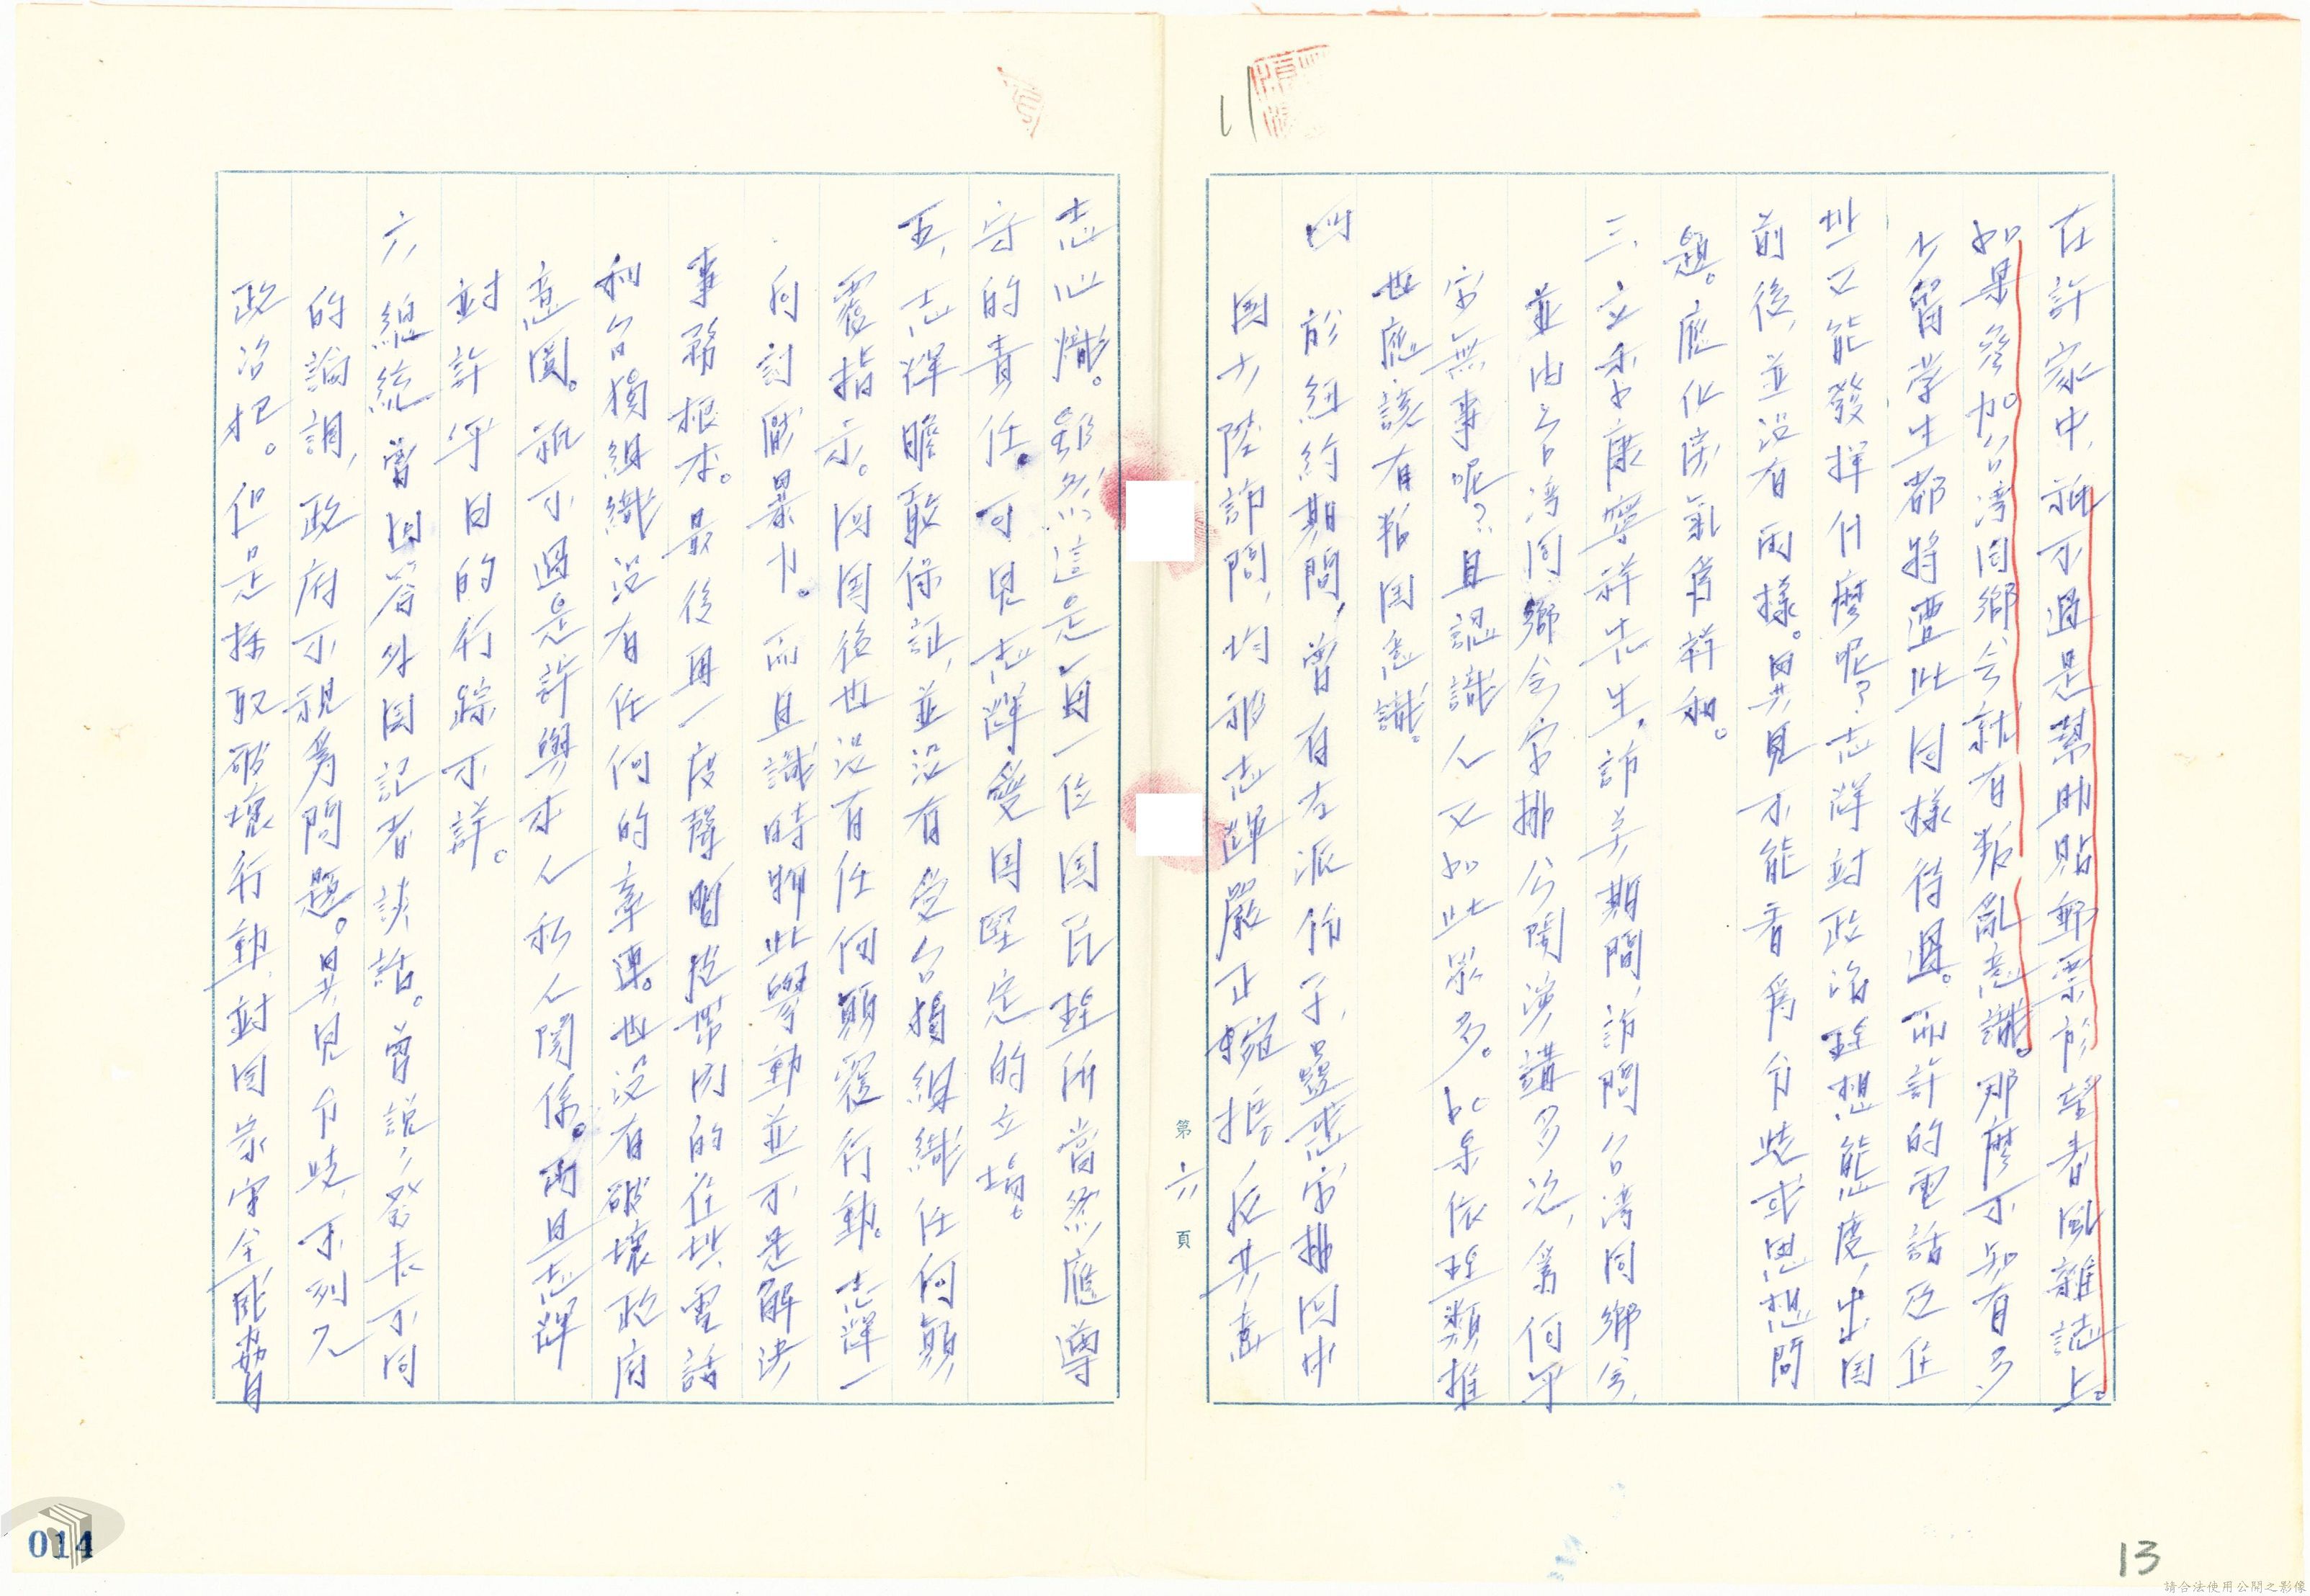 在許家中，祇不過是幫助貼郵票於望春風雜誌上。
如果參加台湾同鄉会就有叛亂意識。那麼不知有多
少留学生都将遭此同樣待遇。而許的電話及住
址又能發揮什麼呢？志洋対政治理想態度，出国
前後，並没有両樣。異見不能看為分歧或思想問
題。應化戾氣為祥和。
三、立委康寧祥先生，訪美期間，訪問台湾同鄉会，
並由台湾同鄉会安排公開演講多次，為何平
安無事呢？且認識人又如此眾多。如果依理類推
也應該有叛国意識。
四 於紐約期間，曾有左派份子，蠱惑安排回中
国大陸訪問，均被志輝嚴正拒，反共意
志心熾。雖然這是每一位国民理所當然應遵
守的責任。可見志輝愛国堅定的立場。
五、志輝膽敢保証，並没有受台獨組織任何顛
覆指示。回国後也没有任何顛覆行動。志輝一
向討厭暴力。而且識時務此舉動並不是解決
事務根本。最後再一度聲明攜帶内的住址，電話
和台獨組織没有任何的牽連。也没有破壞政府
意圖。祇不過是許與本人私人関係。而且志輝
対許平日的行踪不詳。
六、總統曾回答外国記者談話。曾說，發表不同
的論調，政府不視為問題。異見分歧，不列入
政治犯。但是採取破壞行動，対国家安全威脅自
第六頁
11
13
014
請合法使用公開之影像